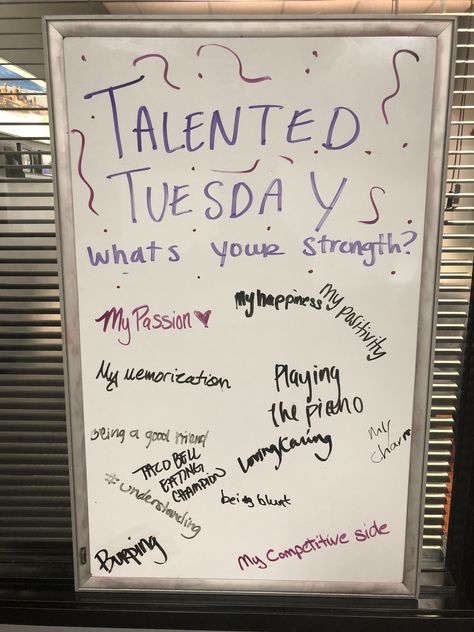 TALENTED
TUESDAYS
whats your strength?
My happiness
My positivity
My Passion
My Memorization
Playing
the piano
being a good friend
Loving/Caring
My
charm
TACO BELL
EATING
CHAMPION
#understanding
being blunt
Burping
My Competitive side